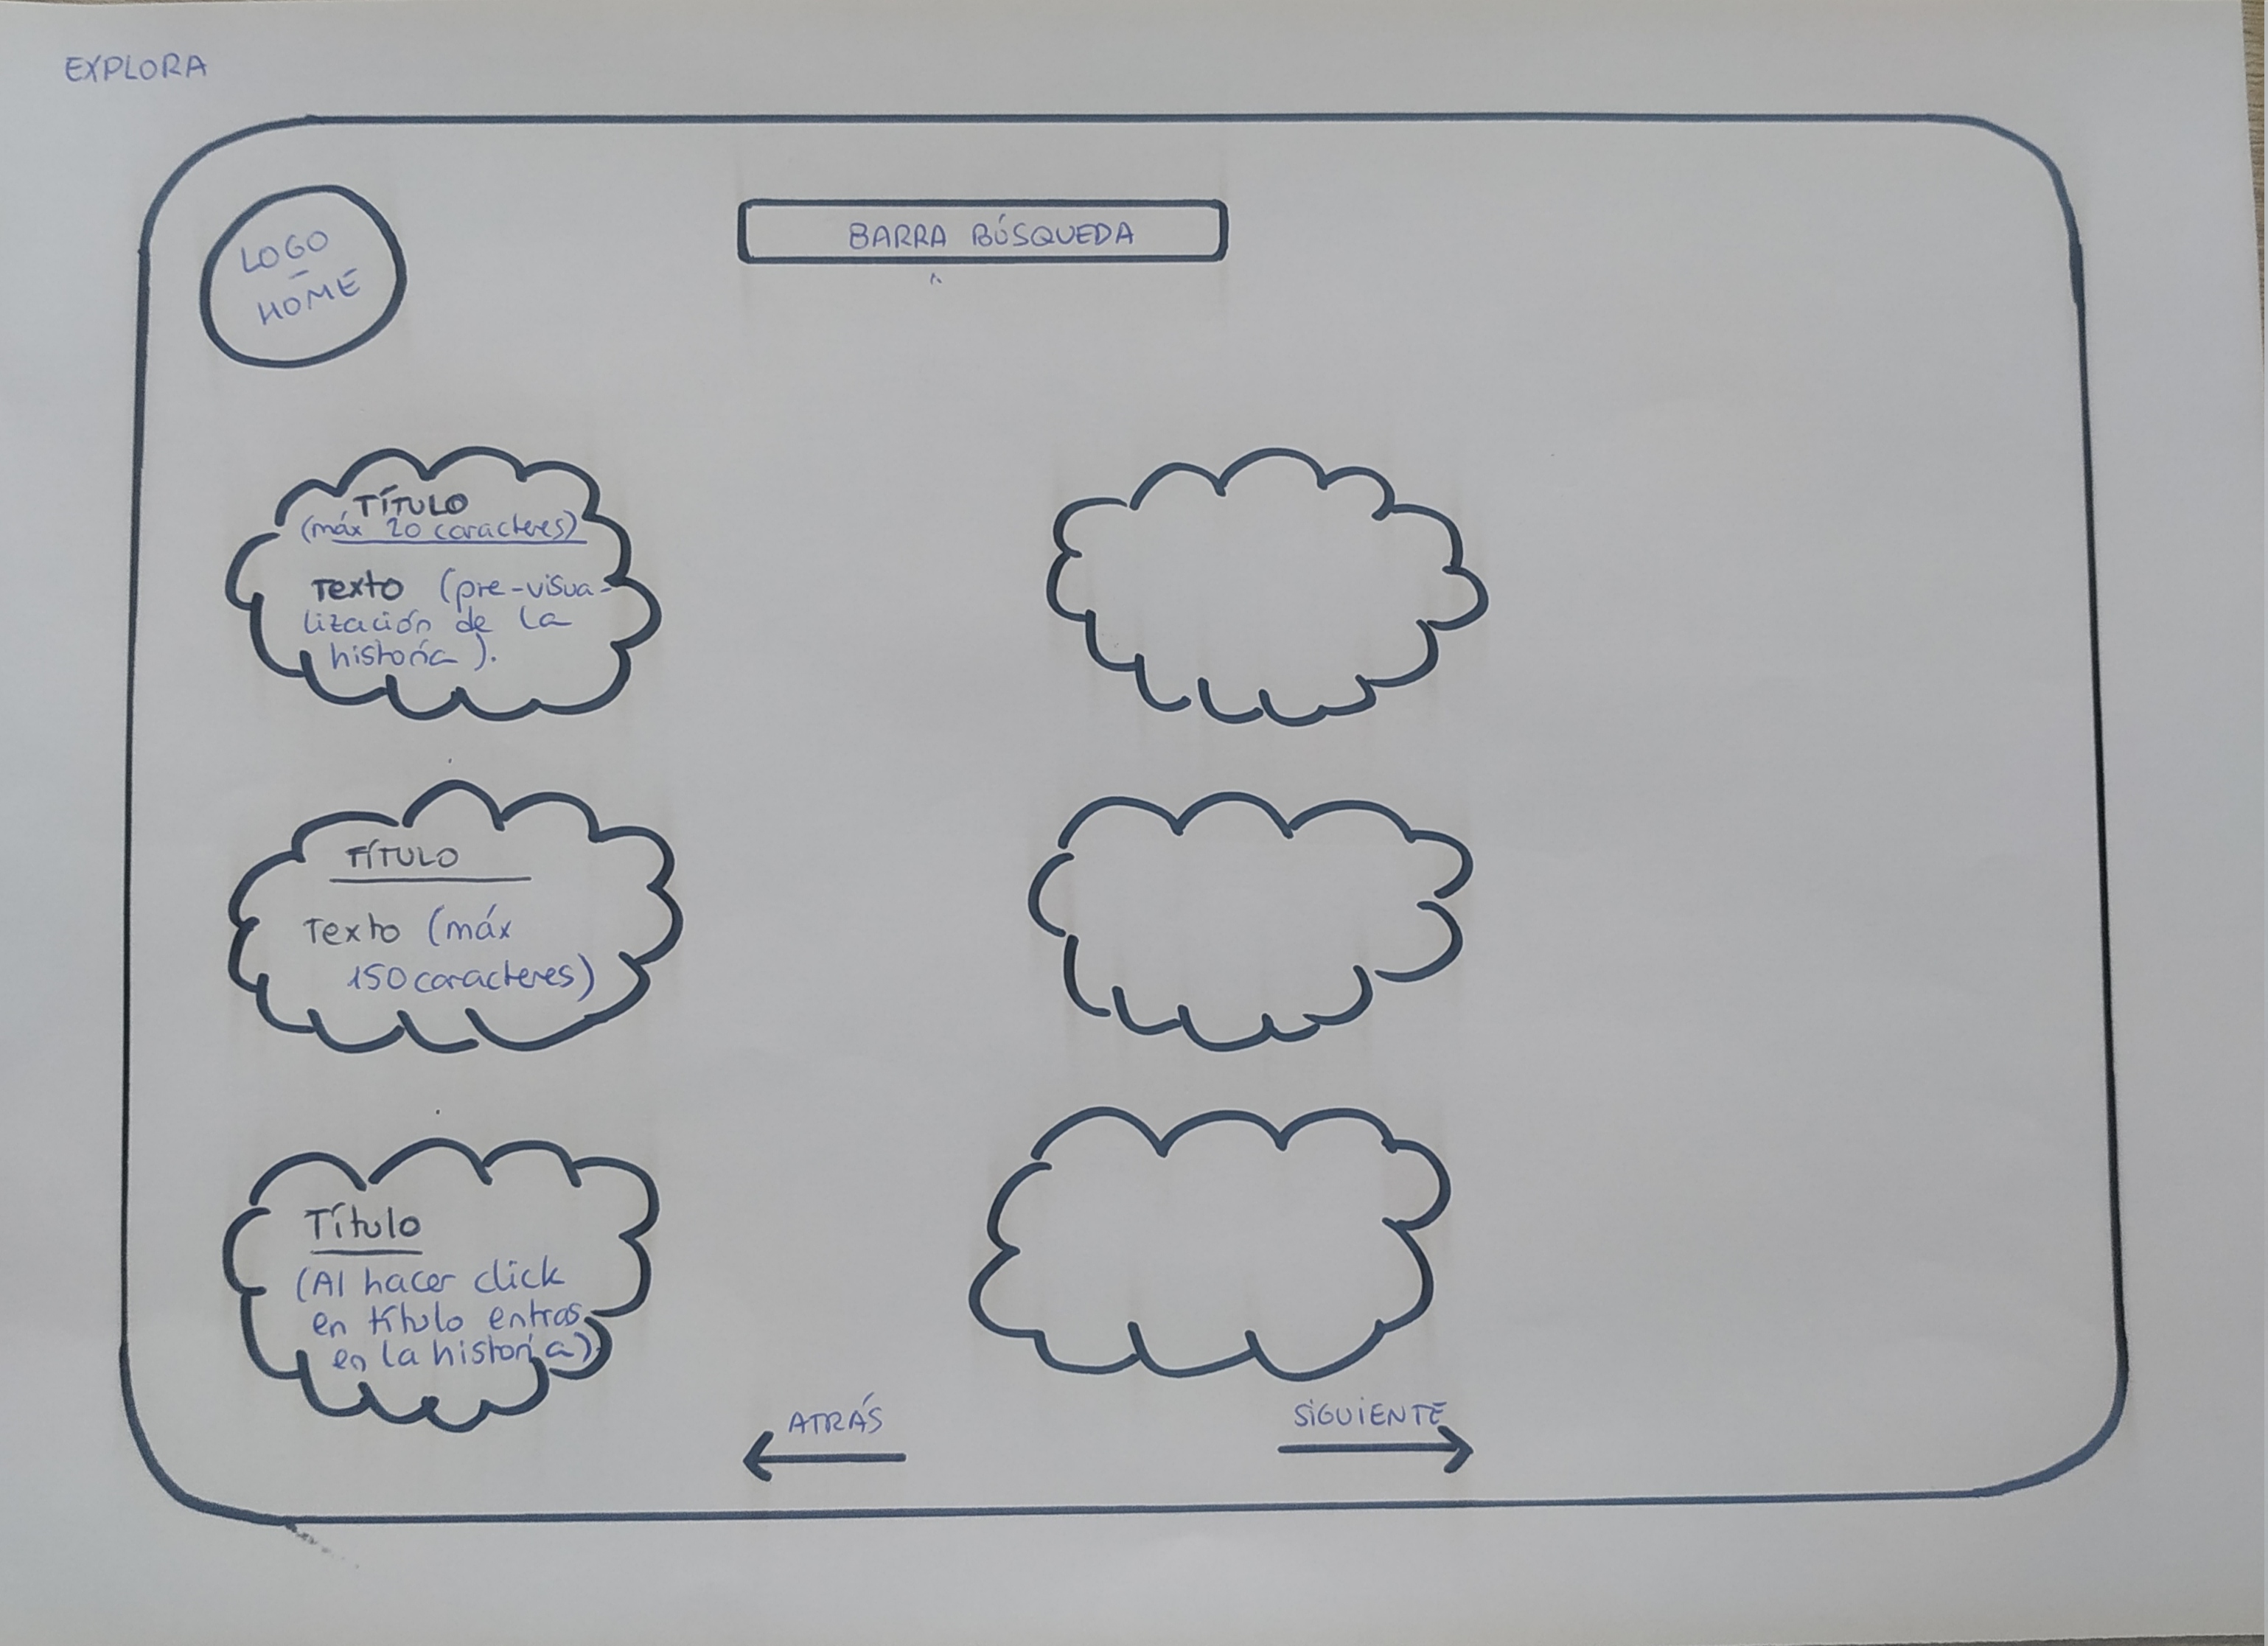 EXPLORA
LOGO
-
HOME
BARRA BÚSQUEDA
TÍTULO
(máx 20 caracteres)
Texto (pre-visua-
lización de la
historia).
TÍTULO
Texto (máx
150 caracteres)
Título
(Al hacer click
en título entras
en la historia)
ATRÁS
SIGUIENTE